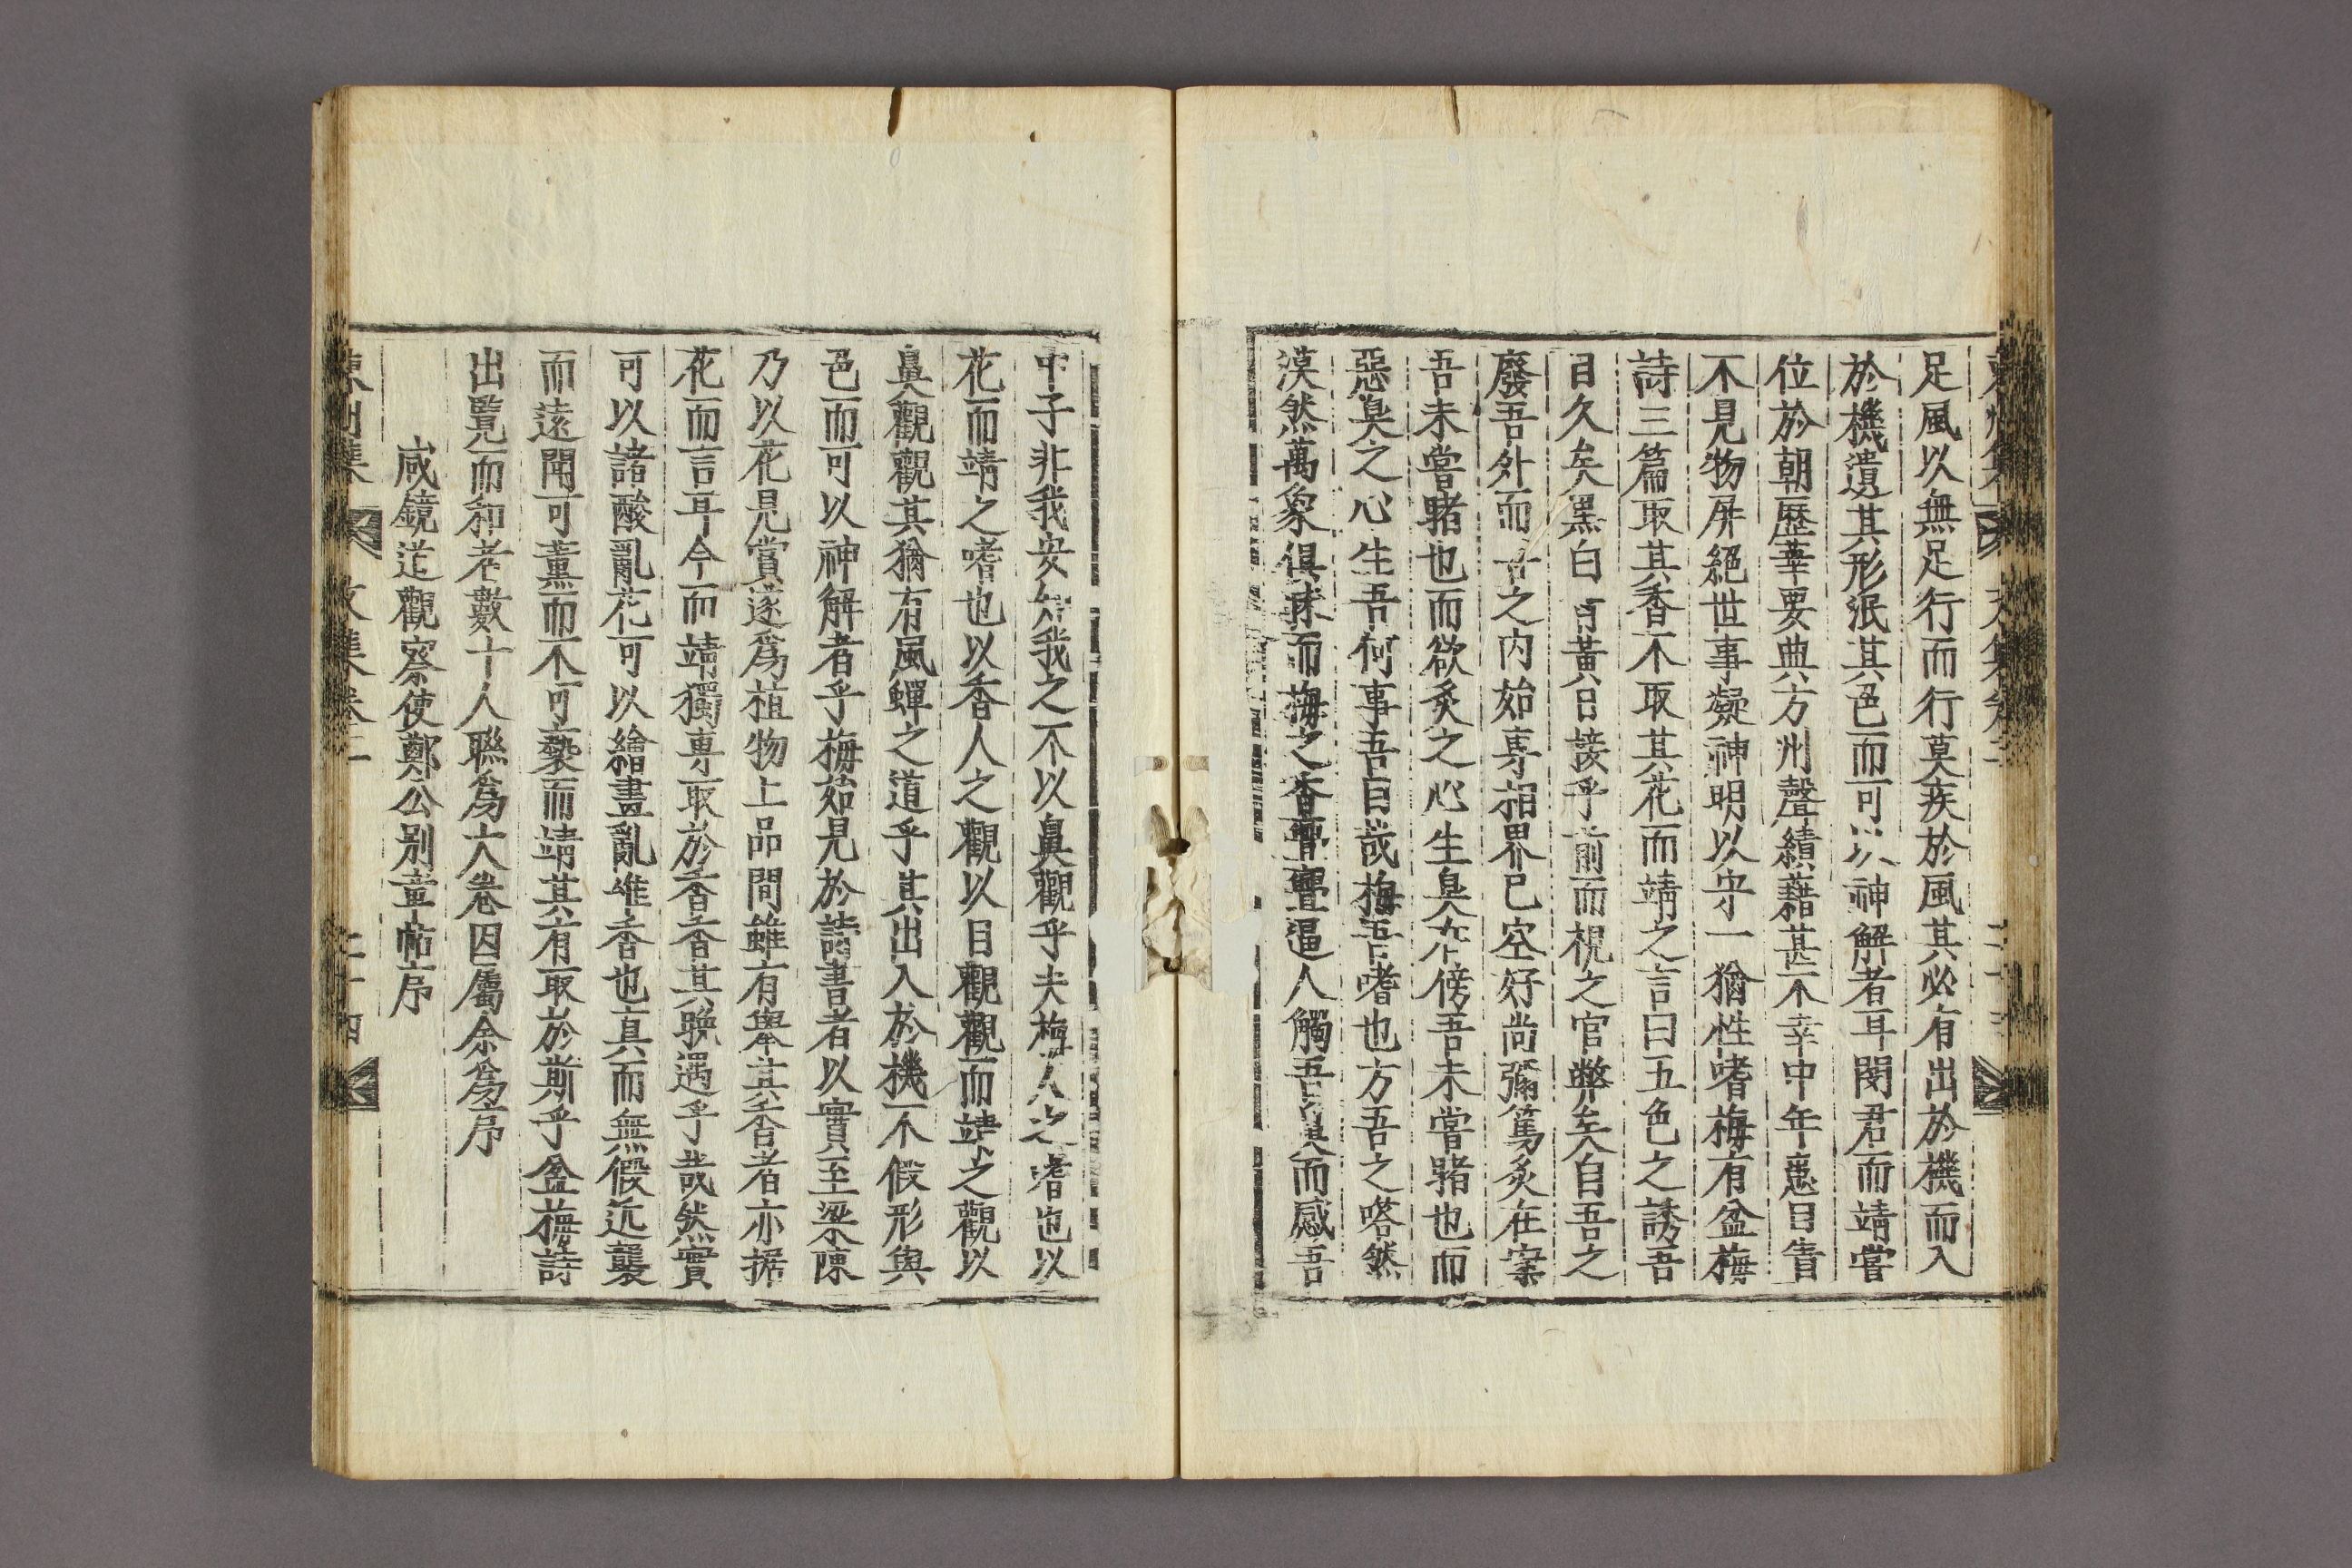 足風以無足行而行莫疾於風其必有出於機而入
於機遺其形泯其色而可以神解者耳閔君而靖嘗
位於朝歷華要典方州聲績藉甚不幸中年患目眚
不見物屏絕世事凝神明以守一猶性嗜梅有盆梅
詩三篇取其香不取其花而靖之言曰五色之誘吾
目久矣黑白青黃日接乎前而視之官弊矣自吾之
廢吾外而吾之内始專相界已空好尚彌篤炙在案
吾未嘗睹也而欲炙之心生臭在傍吾未嘗睹也而
惡臭之心生吾何事吾目哉梅吾嗜也方吾之嗒然
漠然萬象俱昧而梅之香亹亹逼人觸吾鼻而感吾
中子非我安知我之不以鼻觀乎夫梅人之嗜也以
花而靖之嗜也以香人之觀以目觀觀而靖之觀以
鼻觀觀其猶有風蟬之道乎其出入於機不假形與
色而可以神解者乎梅始見於詩書者以實至梁陳
乃以花見賞遂爲植物上品間雖有舉其香者亦據
花而言耳今而靖獨專取於香香其晚遇乎哉然實
可以諸酸亂花可以繪畫亂惟香也真而無假近襲
而遠聞可薰而不可褻而靖其有取於斯乎盆梅詩
出覽而和者數十人聯爲大卷因屬余爲序
咸鏡道觀察使鄭公別章帖序
東州集 文集卷二 二十四